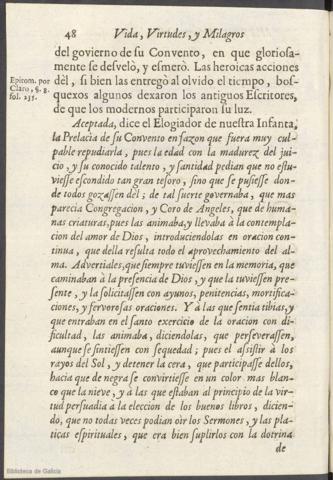 48 Vida, Virtudes, y Milagros
del govierno de su Convento, en que gloriosa-
mente se desvelò, y esmerò. Las heroicas acciones
dèl, si bien las entregò al olvido el tiempo, bos-
quexos algunos dexaron los antiguos Escritores,
de que los modernos participaron su luz.
Epitom. por
Claro, §. 8.
fol. 235.
Aceptada, dice el Elogiador de nuestra Infanta,
la Prelacia de su Convento en sazon que fuera muy cul-
pable repudiarla, pues la edad con la madurez del jui-
cio, y su conocido talento, y santidad pedian que no estu-
viesse escondido tan gran tesoro, sino que se pusiesse don-
de todos gozassen dèl; de tal suerte governaba, que mas
parecia Congregacion, y Coro de Angeles, que de huma-
nas criaturas, pues las animaba, y llevaba à la contempla-
cion del amor de Dios, introduciendolas en oracion con-
tinua, que della resulta todo el aprovechamiento del al-
ma. Advertiales, que siempre tuviessen en la memoria, que
caminaban à la presencia de Dios, y que la tuviessen pre-
sente, y la solicitassen con ayunos, penitencias, mortifica-
ciones, y fervorosas oraciones. Y à las que sentia tibias, y
que entraban en el santo exercicio de la oracion con di-
ficultad, las animaba, diciendolas, que perseverassen,
aunque se sintiessen con sequedad; pues el assistir à los
rayos del Sol, y detener la cera, que participasse dellos,
hacia que de negra se convirtiesse en un color mas blan-
co que la nieve, y à las que estaban al principio de la vir-
tud persuadia à la eleccion de los buenos libros, dicien-
do, que no todas veces podian oir los Sermones, y las pla-
ticas espirituales, que era bien suplirlos con la dotrina
de
Biblioteca de Galicia